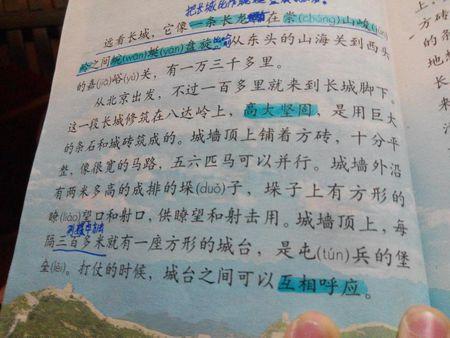 把长城比作
远看长城，它像一条长龙 在崇(chóng)山峻(jùn)
岭之间蜿(wān)蜒(yán)盘旋 从东头的山海关到西头
的嘉(jiā)峪(yù)关，有一万三千多里。
从北京出发，不过一百多里就来到长城脚下。
这一段长城修筑在八达岭上，高大坚固，是用巨大
的条石和城砖筑成的。城墙顶上铺着方砖，十分平
整，像很宽的马路，五六匹马可以并行。城墙外沿
有两米多高的成排的垛(duǒ)子，垛子上有方形的
瞭(liào)望口和射口，供瞭望和射击用。城墙顶上，每
隔三百多米就有一座方形的城台，是屯(tún)兵的堡
垒(lěi)。打仗的时候，城台之间可以互相呼应。
方砖
的条